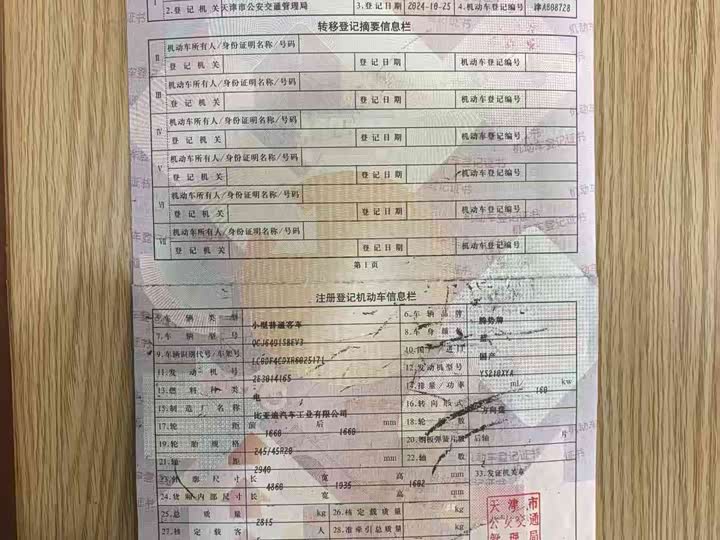 2.登记机关 天津市公安交通管理局 3.登记日期 2024-10-25 4.机动车登记编号 津A808728
转移登记摘要信息栏
II 机动车所有人/身份证明名称/号码
登记机关 登记日期 机动车登记编号
III 机动车所有人/身份证明名称/号码
登记机关 登记日期 机动车登记编号
IV 机动车所有人/身份证明名称/号码
登记机关 登记日期 机动车登记编号
V 机动车所有人/身份证明名称/号码
登记机关 登记日期 机动车登记编号
VI 机动车所有人/身份证明名称/号码
登记机关 登记日期 机动车登记编号
VII 机动车所有人/身份证明名称/号码
登记机关 登记日期 机动车登记编号
第1页
注册登记机动车信息栏
5.车辆类型 小型普通客车 6.车辆品牌
7.车辆型号 8.车身颜色
9.车辆识别代号/车架号 10.国产/进口 国产
11.发动机号 12.发动机型号 YS210XYA
13.燃料种类 电 14.排量/功率 ml/ 160 kw
15.制造厂名称 比亚迪汽车工业有限公司 16.转向形式 方向盘
17.轮距 前 1660 后 1660 mm 18.轮胎数
19.轮胎规格 245/45R20 20.钢板弹簧片数 后轴 片
21.轴距 2940 mm 22.轴数 2
23.外廓尺寸 长 4860 宽 1935 高 1602 mm 33.发证机关章
24.货厢内部尺寸 长 宽 高 mm
25.总质量 2815 kg 26.核定载质量 kg
27.核定载客 人 28.准牵引总质量 kg
天津市
公安交通
管理局